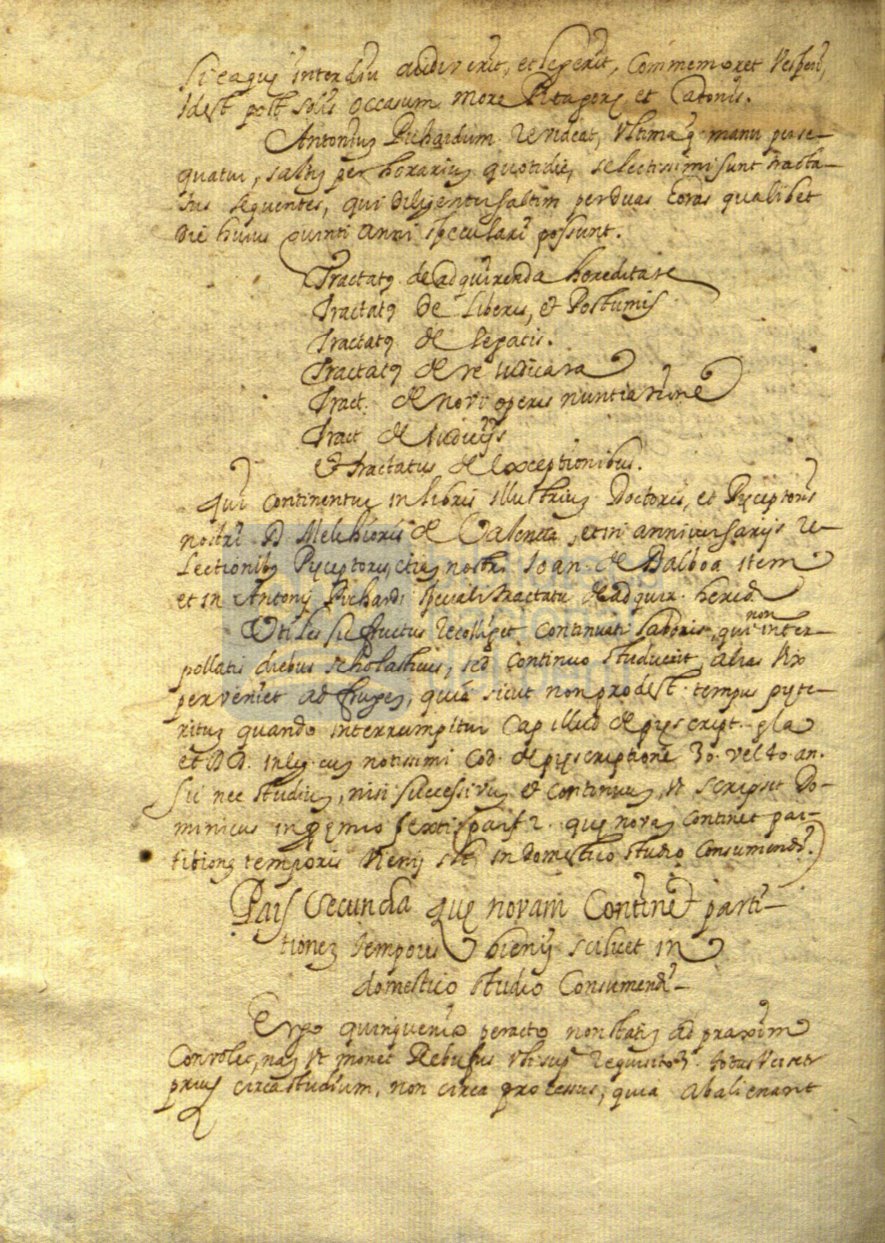 si eaque interdiu audiverit, et legerit, Commemoret Vesperi,
Idest post solis occasum more Pitagorę et Catonis.
Antonium Pichardum revideat, ultima q̃ manu perse-
quatur, saltẽ per horariuȝ quotidiè, selectissimi sunt tracta-
tus sequentes, qui diligenter saltim per duas horas qualibet
die huius quinti anni speculari possunt.
Tractatꝯ de adquirenda hereditate
Tractatꝯ De Liberis, et Postumis
Tractatꝯ de legatis.
Tractatꝯ de re iudicata
Tract. de novi operis nuntiatione
Tract de iudicijs
et tractatus de exceptionibus.
qui continentur in libris illustriuȝ Doctoris, et Pręceptoris
nostri D Melchioris de Valencia, et in anniversarijs re-
Lectionibꝯ Pręceptoris, nostri Ioan. de Balboa item
et in Antonij Pichardi speciali tractatu de adquir. hered.
Utiles sic fructus recolliget continuati laboris, qui non inter-
pollatis diebus scholasticis, sed continuo studuerit, alias vix
perveniet ad frugeȝ, quia sicut non prodest tempus pręte-
rituȝ quando interrumpitur Cap illud de pręscript.
et DD. in leg. cuȝ notissimi Cod. de pręscriptione 30. vel 40 an.
sic nec studiuȝ, nisi successivuȝ et continuuȝ, ut scripsit Do-
minicus in pręmio sexti pars 2. quę novaȝ continet par-
titioneȝ temporis bienij in domestico studio consumendi.
Pars Secunda quę novam Continet parti-
tioneȝ temporis bienij scilicet in
domestico studio Consumendi-
Ergo quinquenio peracto non statiȝ ad praxim
Convolet, naȝ ut monet Rebufus
priuȝ circa studium, non circa processus, quia abalienant